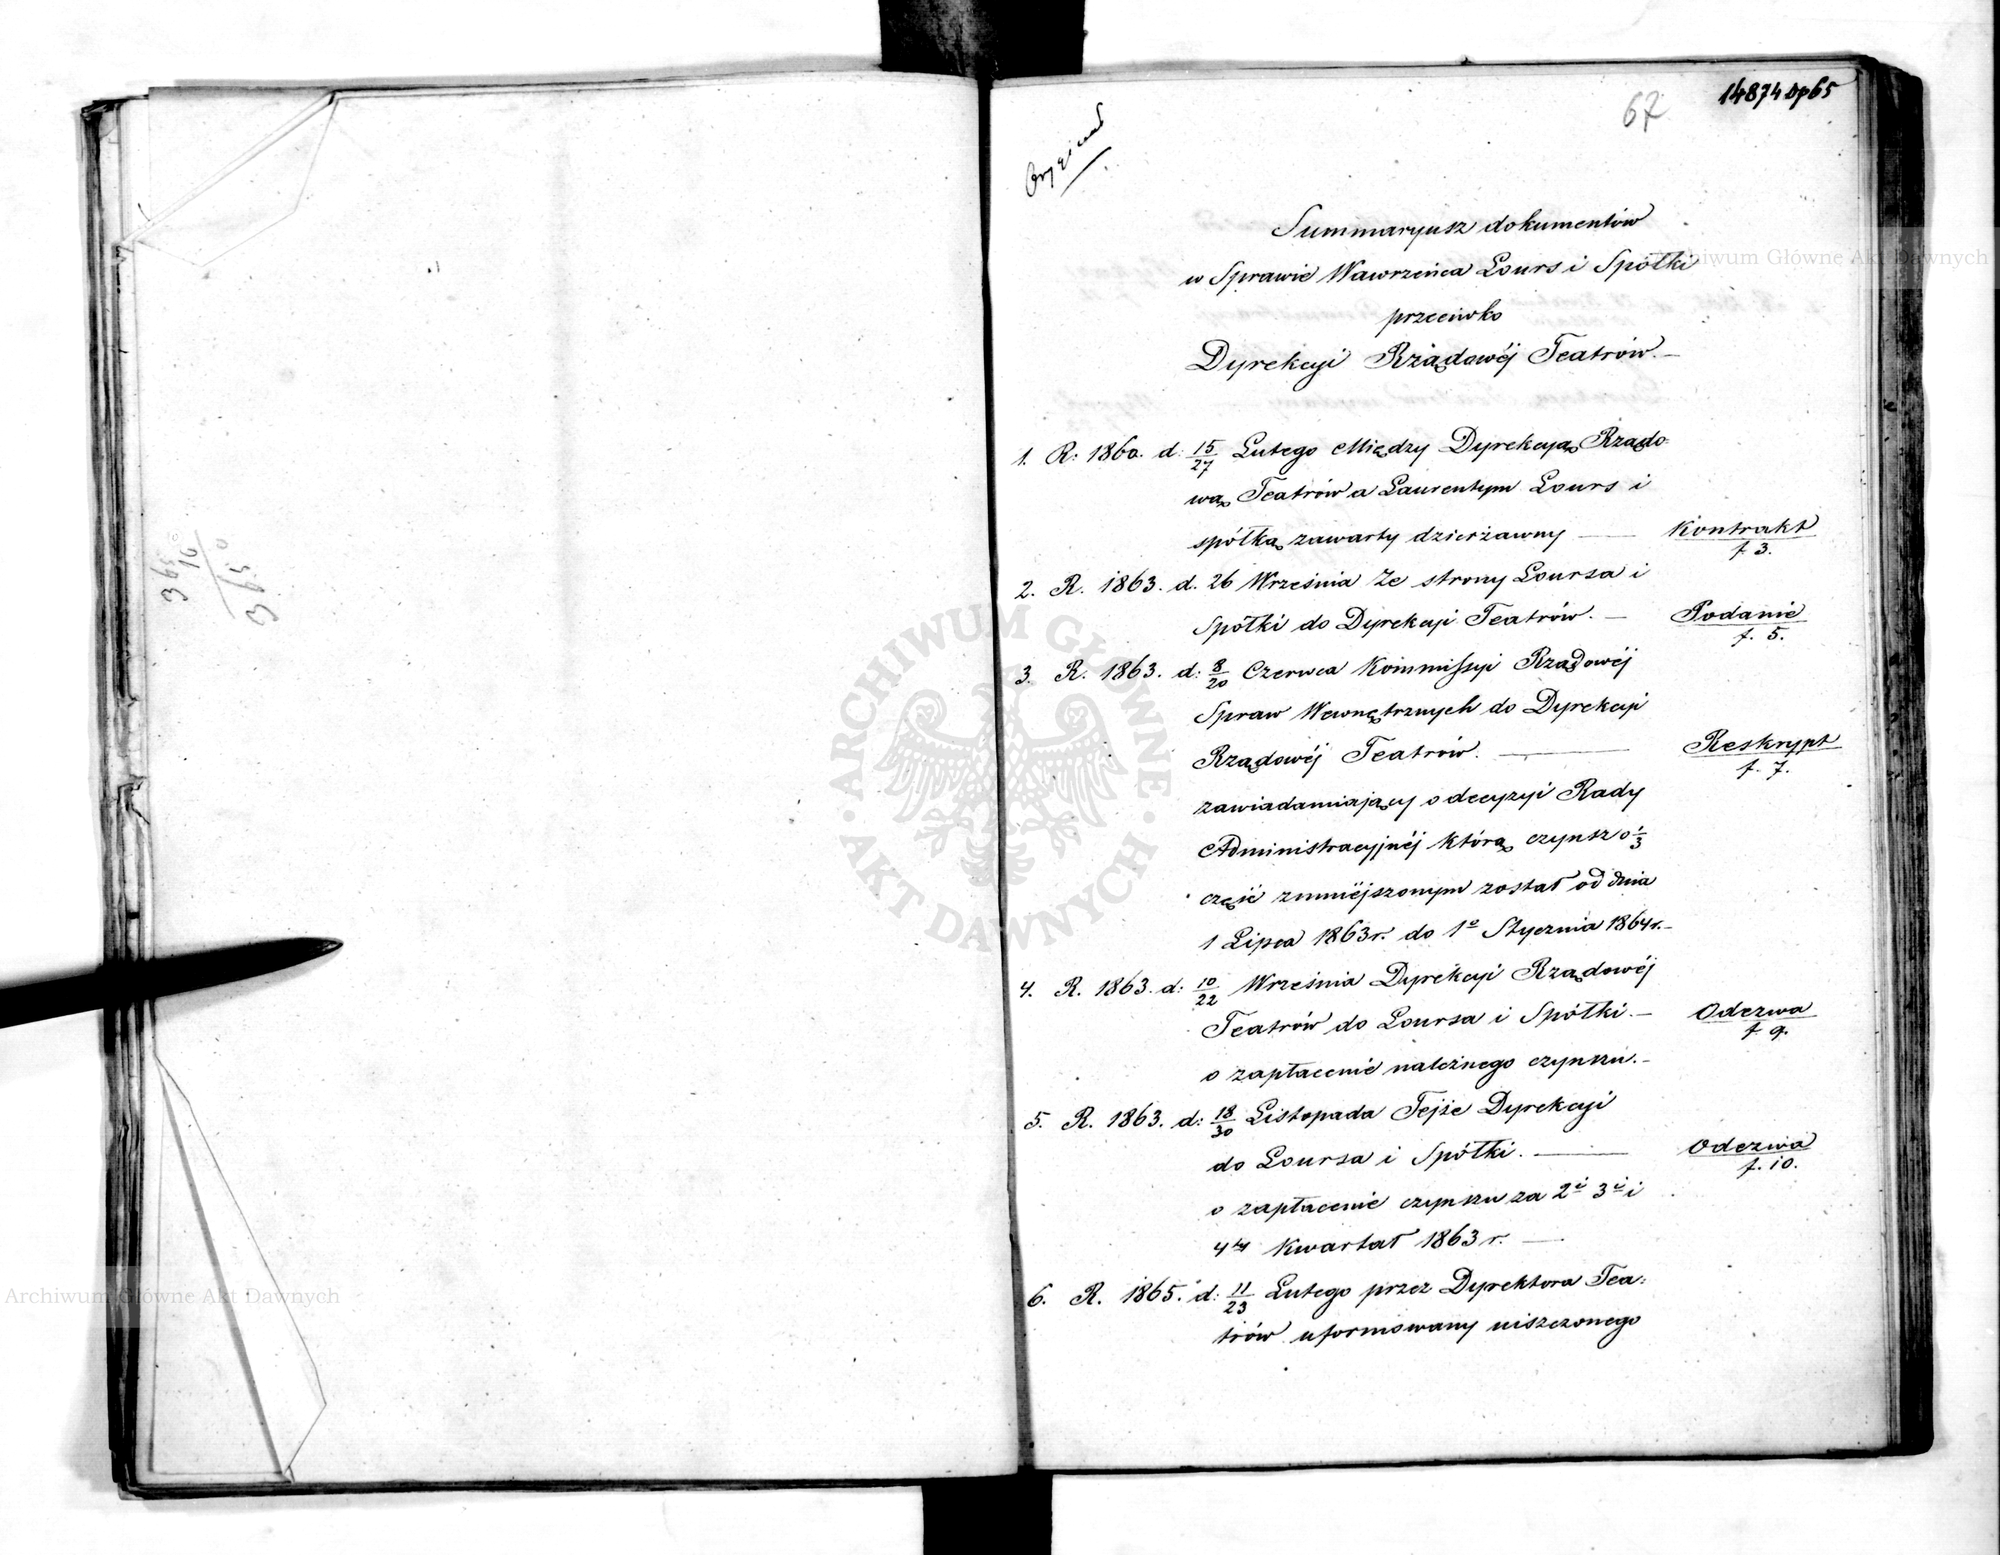 14874 Dp 65
67
Oryginał
Summaryusz dokumentów
w Sprawie Wawrzeńca Lours i Spółki
przeciwko
Dyrekcyi Rządowéj Teatrów. —
1. R: 1860. d: 15/27 Lutego Między Dyrekcyą Rządo-
wą Teatrów a Laurentym Lours i
spółką zawarty dzierżawny — Kontrakt
f 3.
2. R. 1863. d. 26 Września Ze strony Loursa i
Spółki do Dyrekcyi Teatrów. — Podanie
f. 5.
3. R. 1863. d: 8/20 Czerwca Kommissyi Rządowéj
Spraw Wewnętrznych do Dyrekcyi
Rządowéj Teatrów. — Reskrypt
f. 7.
zawiadamiający o decyzyi Rady
Administracyjnéj którą czynsz o 1/3
część zmniéjszonym został od dnia
1 Lipca 1863 r. do 1o Stycznia 1864 r. —
4. R. 1863. d: 10/22 Września Dyrekcyi Rządowéj
Teatrów do Loursa i Spółki. — Odezwa
f. 9.
o zapłacenie należnego czynszu. —
5. R. 1863. d: 18/30 Listopada Tejże Dyrekcyi
do Loursa i Spółki. — Odezwa
f. 10.
o zapłacenie czynszu za 2i 3i i
4ty Kwartał 1863 r. —
6. R. 1865. d: 11/23 Lutego przez Dyrektora Tea:
trów uformowany uiszczonego
390
ARCHIWUM GŁÓWNE AKT DAWNYCH
Archiwum Główne Akt Dawnych
Archiwum Główne Akt Dawnych